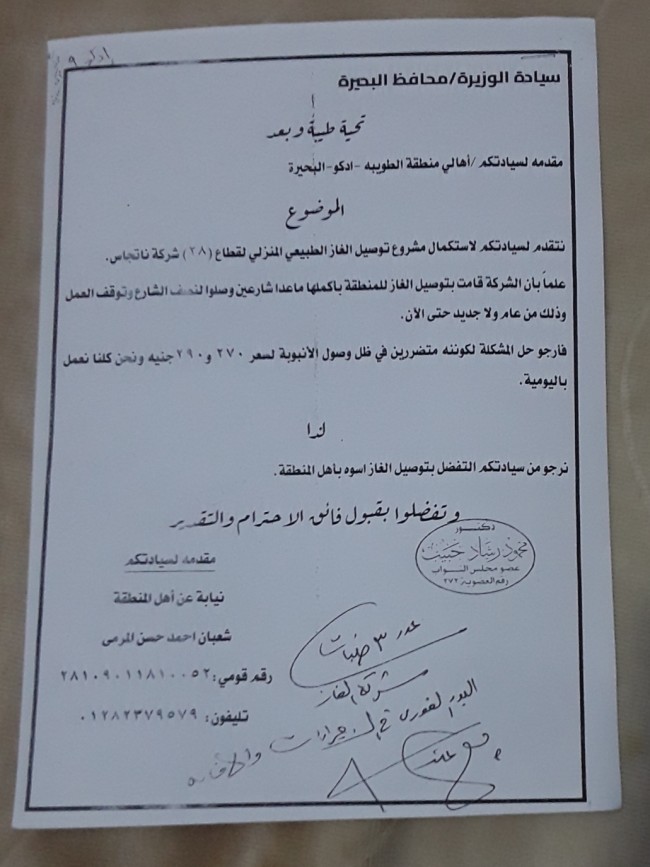 ادكو ٩
سيادة الوزيرة/محافظ البحيرة
تحية طيبة وبعد
مقدمه لسيادتكم /أهالي منطقة الطويبه -ادكو-البحيرة
الموضوع
نتقدم لسيادتكم لاستكمال مشروع توصيل الغاز الطبيعي المنزلي لقطاع (٢٨) شركة ناتجاس.
علماً بأن الشركة قامت بتوصيل الغاز للمنطقة بأكملها ماعدا شارعين وصلوا لنصف الشارع وتوقف العمل
وذلك من عام ولا جديد حتى الآن.
فأرجو حل المشكلة لكوننه متضررين في ظل وصول الأنبوبة لسعر ٢٧٠ و٢٩٠ جنيه ونحن كلنا نعمل
باليومية.
لذا
نرجو من سيادتكم التفضل بتوصيل الغاز اسوه بأهل المنطقة.
وتفضلوا بقبول فائق الاحترام والتقدير
دكتور
محمود رشاد خبيت
عضو مجلس النواب
رقم العضوية: ٢٧٢
مقدمه لسيادتكم
نيابة عن أهل المنطقة
شعبان احمد حسن المرمى
رقم قومي: ٢٨١٠٩٠١١٨١٠٠٥٢
تليفون: ٠١٢٨٢٣٧٩٥٧٩
عدد ٣ طلبات
شركة الغاز